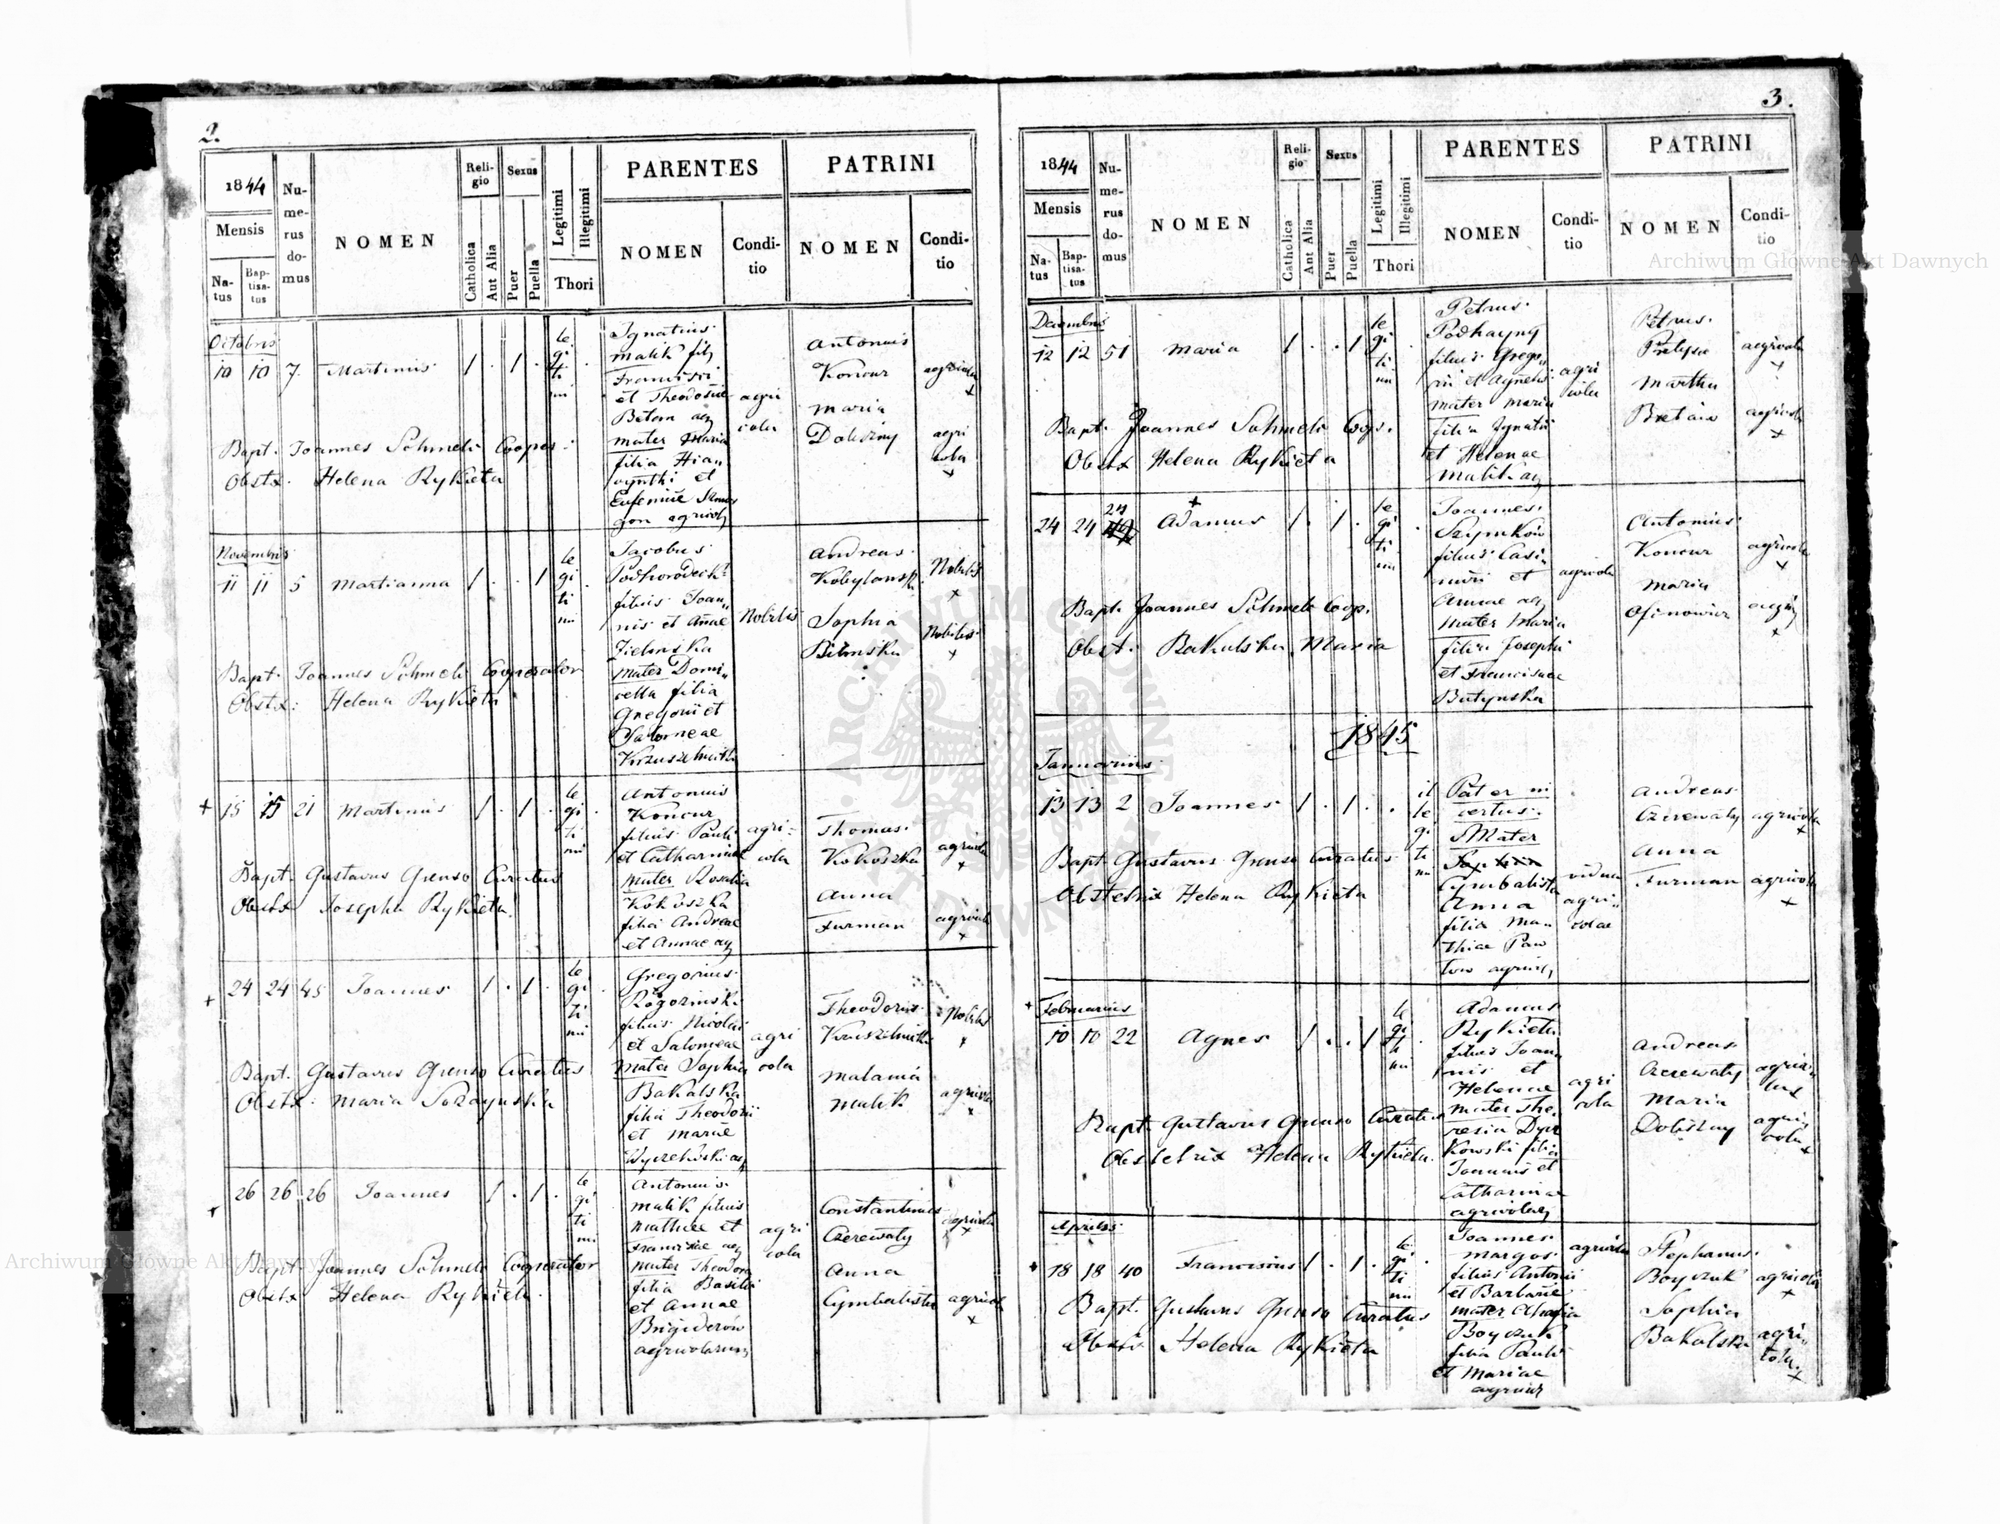 2.
1844
Mensis
Natus
Baptisatus
Numerus domus
NOMEN
Religio
Catholica
Aut Alia
Sexus
Puer
Puella
Legitimi
Illegitimi
Thori
PARENTES
NOMEN
Conditio
PATRINI
NOMEN
Conditio
Octobris
10 10 7. Martinus 1 . 1 .
le
gi
ti
mi
Ignatius
Malik fily
Francisci
et Theodosiae
mater Maria
filia Hian
cynthi et
agri
cola
Antonius
Koncur
Maria
Doliszny
agricola
x
agri
cola
x
Bapt. Joannes Schmeli Cooper:
Obstx. Helena Rykieta
Novembris
11 11 5 Martianna 1 . . 1
le
gi
ti
mi
Jacobus
filius Joan
nis et Annae
Zielinska
Mater Domi
cella filia
Gregorii et
Salomeae
Nobilis
Andreas
Kobylanski
Sophia
Bilinska
Nobilis
x
Nobilis
x
Bapt. Joannes Schmeli Cooperator
Obstx: Helena Rykieta
+ 15 15 21 Martinus 1 . 1 .
le
gi
ti
mi
Antonius
Koncur
filius Pauli
et Catharinae
Mater Rosalia
Kokoszka
filia Andreae
et Annae ag
agri-
cola
Thomas
Kokoszka
Anna
Furman
agricola
x
agricola
x
Bapt. Gustavus Grenso Curatus
Obstx Josepha Rykieta
+ 24 24 45 Joannes 1 . 1 .
le
gi
ti
mi
Gregorius
Rogozinski
filius Nicolai
et Salomeae
Mater Sophia
Bakalska
filia Theodorii
et Mariae
agri
cola
Theodorus
Malania
Malik
Nobilis
x
agricola
x
Bapt. Gustavus Grenso Curatus
Obstx. Maria
+ 26 26 26 Joannes 1 . 1 .
le
gi
ti
mi
Antonius
Malik filius
Mathiae et
Franciscae ag
Mater Theodora
filia Basilii
et Annae
Brigiderów
agricolarum
agri
cola
Constantinus
Czerewaty
Anna
Cymbalista
agricola
x
agricola
x
Bapt. Joannes Schmeli Cooperator
Obstx Helena Rykieta
3.
1844
Mensis
Natus
Baptisatus
Numerus domus
NOMEN
Religio
Catholica
Aut Alia
Sexus
Puer
Puella
Legitimi
Illegitimi
Thori
PARENTES
NOMEN
Conditio
PATRINI
NOMEN
Conditio
Decembris
12 12 51 Maria 1 . . 1
le
gi
ti
mi
Petrus
Podhayny
filius Grego
rii et Agnetis
Mater Maria
filia Ignatii
et Helenae
Malik ag
agri
cola
Petrus
Martha
agricola
x
agricola
x
Bapt. Joannes Schmeli Coop.
Obstx Helena Rykieta
24 24 24 Adamus 1 . 1 .
le
gi
ti
mi
Joannes
Szymków
filius Casi
miri et
Annae ag
Mater Maria
filia Josephi
et Franciscae
Batynska
agricola
Antonius
Koncur
Maria
agricola
x
x
Bapt. Joannes Schmeli Coop.
Obst. Bakalska Maria
1845
Januarius
13 13 2 Joannes 1 . 1 . .
il
le
gi
ti
mi
Pater in
certus.
Mater
Cymbalista
Anna
filia Ma
thiae Paw
low
vidua
agri
colae
Andreas
Czerewaty
Anna
Furman
agricola
x
agricola
x
Bapt. Gustavus Grenso Curatus
Obstetrix Helena Rykieta
+ Februarius
10 10 22 Agnes 1 . . 1
le
gi
ti
mi
Adamus
Rykieta
filius Joan
nis et
Helenae
Mater The
resia Dyr
kowski filia
Joannis et
Catharinae
agricolae
agri
cola
Andreas
Czerewaty
Maria
Doliszny
agri
cola
x
Bapt. Gustavus Grenso Curatus
Obstetrix Helena Rykieta.
Aprilis
+ 18 18 40 Franciscus 1 . 1 .
le
gi
ti
mi
Joannes
Margos
filius Antonii
et Barbarae
mater Ahafia
Boyczuk
filia Pauli
et Mariae
agricola
Stephanus
Boyczuk
Sophia
Bakalska
agricola
x
agri
cola
x
Bapt. Gustavus Grenso Curatus
Obstx Helena Rykieta
Archiwum Główne Akt Dawnych
Archiwum Główne Akt Dawnych
ARCHIWUM GŁÓWNE AKT DAWNYCH